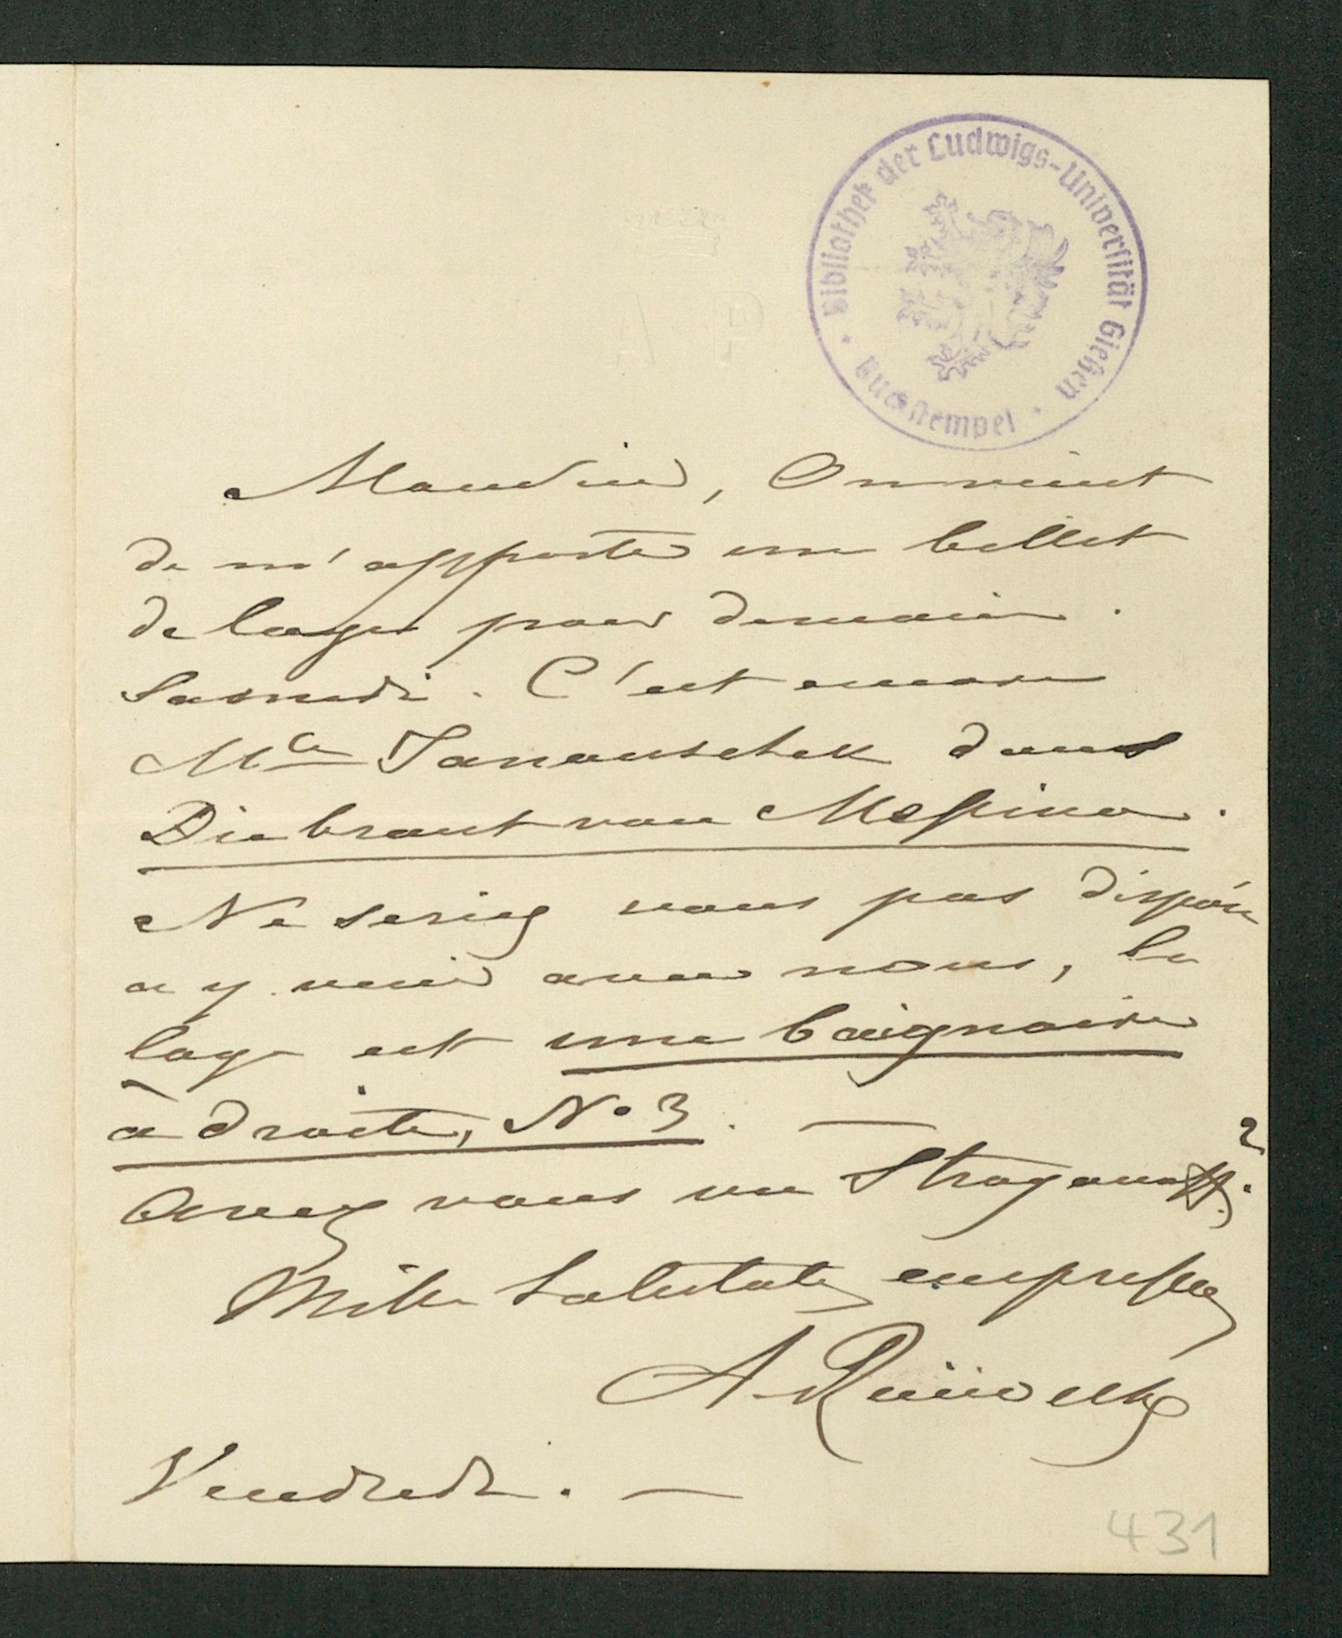 Bibliothek der Ludwigs-Universität Gießen
Buchstempel
Monsieur, On vient
de m'apporter un billet
de loge pour demain
Samedi. C'est encore
Mlle Janauschek dans
Die braut von Messina.
Ne seriez vous pas disposé
a y venir avec nous, la
loge est une baignoire
à droite, No 3. —
Avez vous vu Stroganoff?
Mille Salutats empressés
A.
Vendredi. —
431